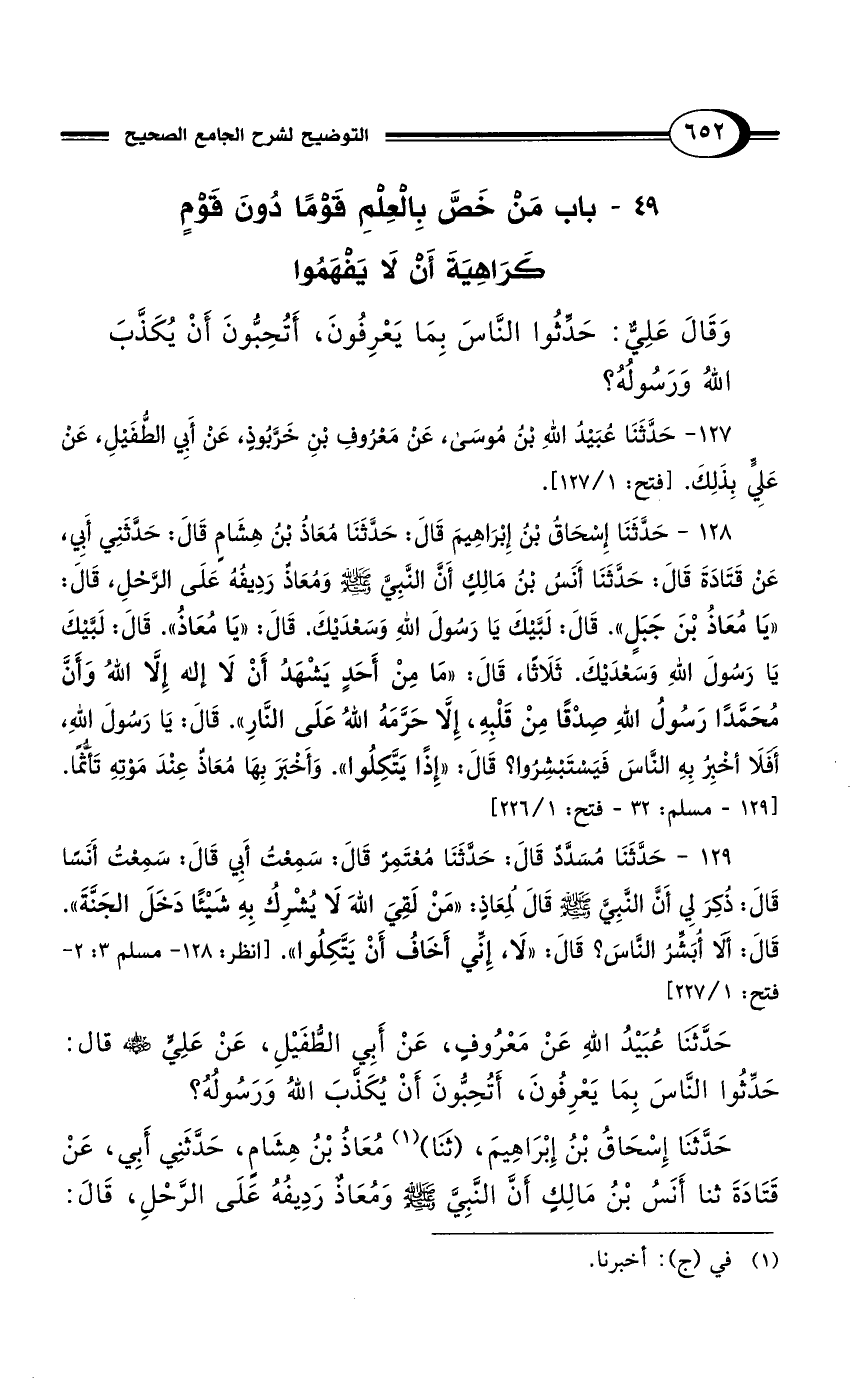 ٦٥٢ التوضيح لشرح الجامع الصحيح
٤٩ - باب مَنْ خَصَّ بِالْعِلْمِ قَوْمًا دُونَ قَوْمٍ
كَرَاهِيَةَ أَنْ لَا يَفْهَمُوا
وَقَالَ عَلِيٌّ: حَدِّثُوا النَّاسَ بِمَا يَعْرِفُونَ، أَتُحِبُّونَ أَنْ يُكَذَّبَ
اللهُ وَرَسُولُهُ؟
١٢٧- حَدَّثَنَا عُبَيْدُ اللهِ بْنُ مُوسَىٰ، عَنْ مَعْرُوفِ بْنِ خَرَّبُوذٍ، عَنْ أَبِي الطُّفَيْلِ، عَنْ
عَلِيٍّ بِذَلِكَ. [فتح: ١/ ١٢٧].
١٢٨ - حَدَّثَنَا إِسْحَاقُ بْنُ إِبْرَاهِيمَ قَالَ: حَدَّثَنَا مُعَاذُ بْنُ هِشَامٍ قَالَ: حَدَّثَنِي أَبِي،
عَنْ قَتَادَةَ قَالَ: حَدَّثَنَا أَنَسُ بْنُ مَالِكٍ أَنَّ النَّبِيَّ ﷺ وَمُعَاذٌ رَدِيفُهُ عَلَى الرَّحْلِ، قَالَ:
«يَا مُعَاذُ بْنَ جَبَلٍ». قَالَ: لَبَّيْكَ يَا رَسُولَ اللهِ وَسَعْدَيْكَ. قَالَ: «يَا مُعَاذُ». قَالَ: لَبَّيْكَ
يَا رَسُولَ اللهِ وَسَعْدَيْكَ. ثَلَاثًا، قَالَ: «مَا مِنْ أَحَدٍ يَشْهَدُ أَنْ لَا إله إِلَّا اللهُ وَأَنَّ
مُحَمَّدًا رَسُولُ اللهِ صِدْقًا مِنْ قَلْبِهِ، إِلَّا حَرَّمَهُ اللهُ عَلَى النَّارِ». قَالَ: يَا رَسُولَ اللهِ،
أَفَلَا أُخْبِرُ بِهِ النَّاسَ فَيَسْتَبْشِرُوا؟ قَالَ: «إِذًا يَتَّكِلُوا». وَأَخْبَرَ بِهَا مُعَاذٌ عِنْدَ مَوْتِهِ تَأَثُّمًا.
[١٢٩ - مسلم: ٣٢ - فتح: ١/ ٢٢٦]
١٢٩ - حَدَّثَنَا مُسَدَّدٌ قَالَ: حَدَّثَنَا مُعْتَمِرٌ قَالَ: سَمِعْتُ أَبِي قَالَ: سَمِعْتُ أَنَسًا
قَالَ: ذُكِرَ لِي أَنَّ النَّبِيَّ ﷺ قَالَ لِمُعَاذٍ: «مَنْ لَقِيَ اللهَ لَا يُشْرِكُ بِهِ شَيْئًا دَخَلَ الجَنَّةَ».
قَالَ: أَلَا أُبَشِّرُ النَّاسَ؟ قَالَ: «لَا، إِنِّي أَخَافُ أَنْ يَتَّكِلُوا». [انظر: ١٢٨- مسلم ٣: ٢-
فتح: ١/ ٢٢٧]
حَدَّثَنَا عُبَيْدُ اللهِ عَنْ مَعْرُوفٍ، عَنْ أَبِي الطُّفَيْلِ، عَنْ عَلِيٍّ ﵁ قال:
حَدِّثُوا النَّاسَ بِمَا يَعْرِفُونَ، أَتُحِبُّونَ أَنْ يُكَذَّبَ اللهُ وَرَسُولُهُ؟
حَدَّثَنَا إِسْحَاقُ بْنُ إِبْرَاهِيمَ، (ثَنَا)(١) مُعَاذُ بْنُ هِشَامٍ، حَدَّثَنِي أَبِي، عَنْ
قَتَادَةَ ثنا أَنَسُ بْنُ مَالِكٍ أَنَّ النَّبِيَّ ﷺ وَمُعَاذٌ رَدِيفُهُ عَلَى الرَّحْلِ، قَالَ:
(١) في (ج): أخبرنا.